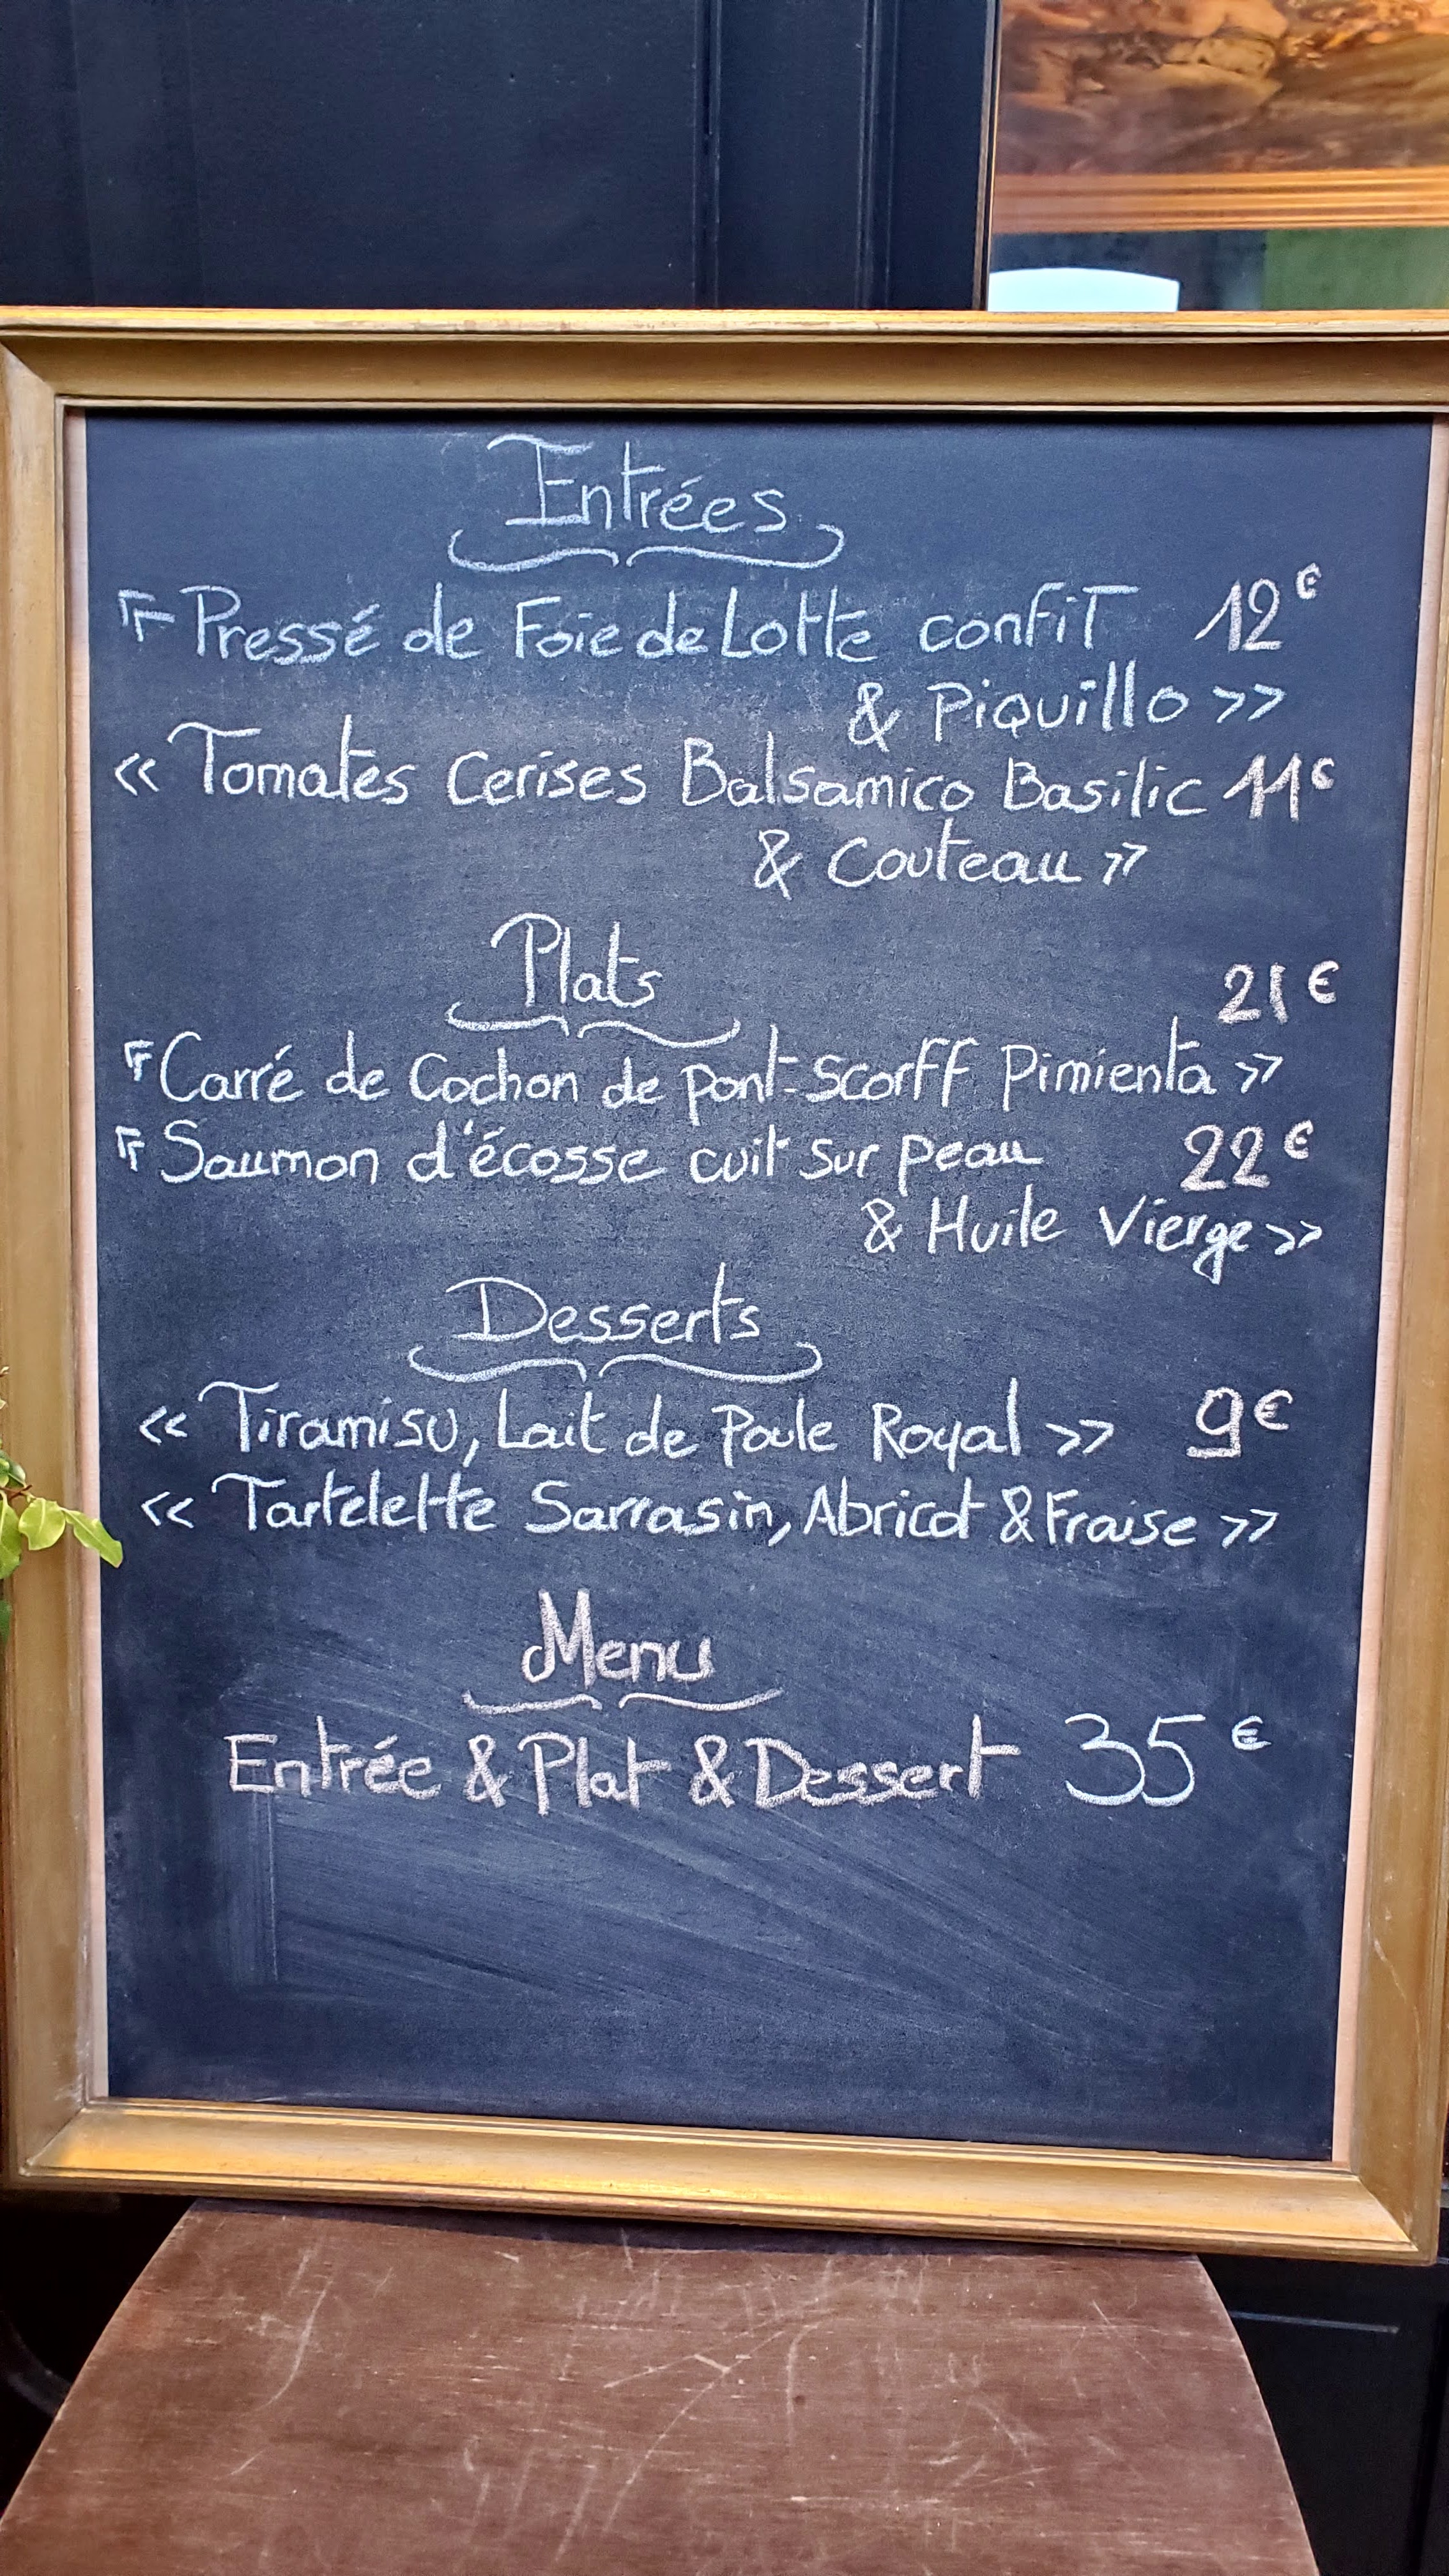 Entrées
« Pressé de Foie de Lotte confit 12€
& Piquillo »
« Tomates Cerises Balsamico Basilic 11€
& Couteau »
Plats
21€
« Carré de Cochon de pont-Scorff Pimienta »
« Saumon d'écosse cuit sur peau 22€
& Huile Vierge »
Desserts
« Tiramisu, Lait de Poule Royal » 9€
« Tartelette Sarrasin, Abricot & Fraise »
Menu
Entrée & Plat & Dessert 35€